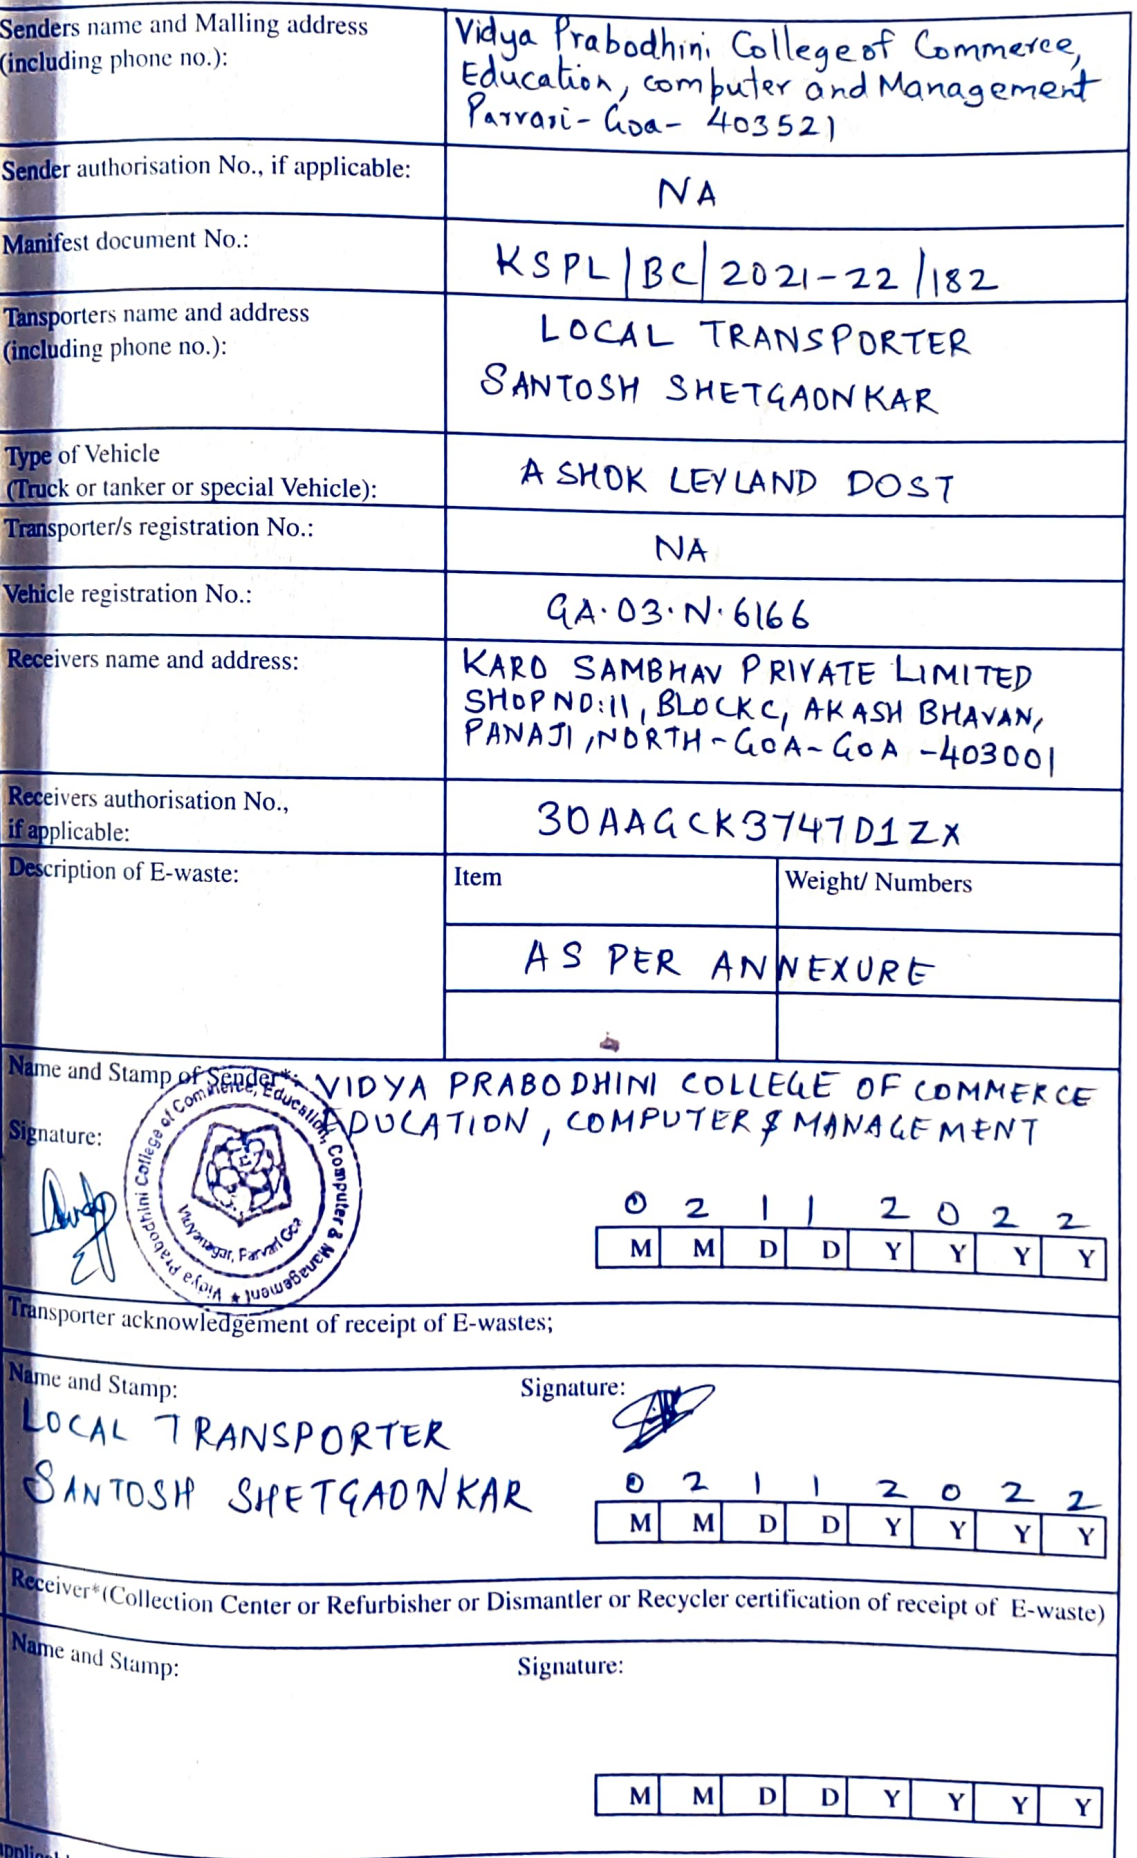 Senders name and Malling address
(including phone no.):
Vidya Prabodhini College of Commerce,
Education, computer and Management
Parvari - Goa - 403521
Sender authorisation No., if applicable:
NA
Manifest document No.:
KSPL/BC/2021-22/182
Tansporters name and address
(including phone no.):
LOCAL TRANSPORTER
SANTOSH SHETGAONKAR
Type of Vehicle
(Truck or tanker or special Vehicle):
ASHOK LEYLAND DOST
Transporter/s registration No.:
NA
Vehicle registration No.:
GA.03.N.6166
Receivers name and address:
KARO SAMBHAV PRIVATE LIMITED
SHOP NO:11, BLOCK C, AKASH BHAVAN,
PANAJI, NORTH-GOA-GOA -403001
Receivers authorisation No.,
if applicable:
30AAGCK3747D1ZX
Description of E-waste:
Item
Weight/ Numbers
AS PER ANNEXURE
Name and Stamp of Sender*:
VIDYA PRABODHINI COLLEGE OF COMMERCE
EDUCATION, COMPUTER & MANAGEMENT
Signature:
Vidya Prabodhini College of Commerce, Education, Computer & Management ★
Vidyanagar, Parvari Goa
0 2 1 1 2 0 2 2
M M D D Y Y Y Y
Transporter acknowledgement of receipt of E-wastes;
Name and Stamp:
Signature:
LOCAL TRANSPORTER
SANTOSH SHETGAONKAR
0 2 1 1 2 0 2 2
M M D D Y Y Y Y
Receiver*(Collection Center or Refurbisher or Dismantler or Recycler certification of receipt of E-waste)
Name and Stamp:
Signature:
M M D D Y Y Y Y